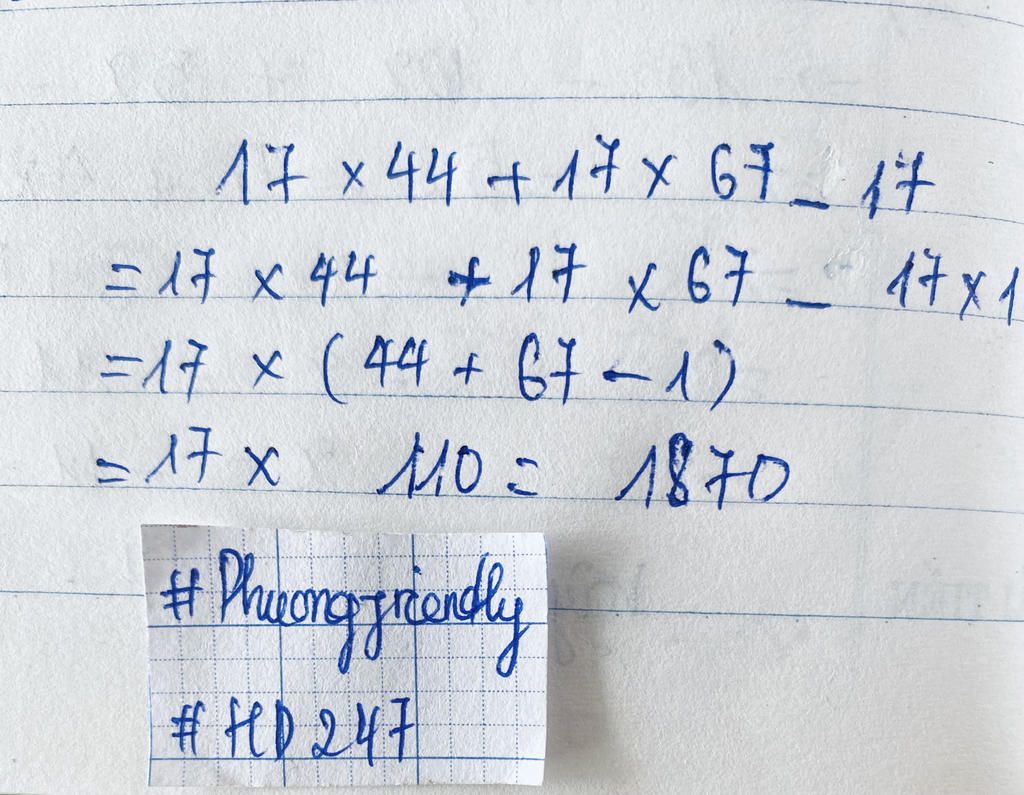 17 × 44 + 17 × 67 - 17
= 17 × 44 + 17 × 67 - 17 × 1
= 17 × ( 44 + 67 - 1 )
= 17 × 110 = 1870
# Phuong-friendly
# HD 247